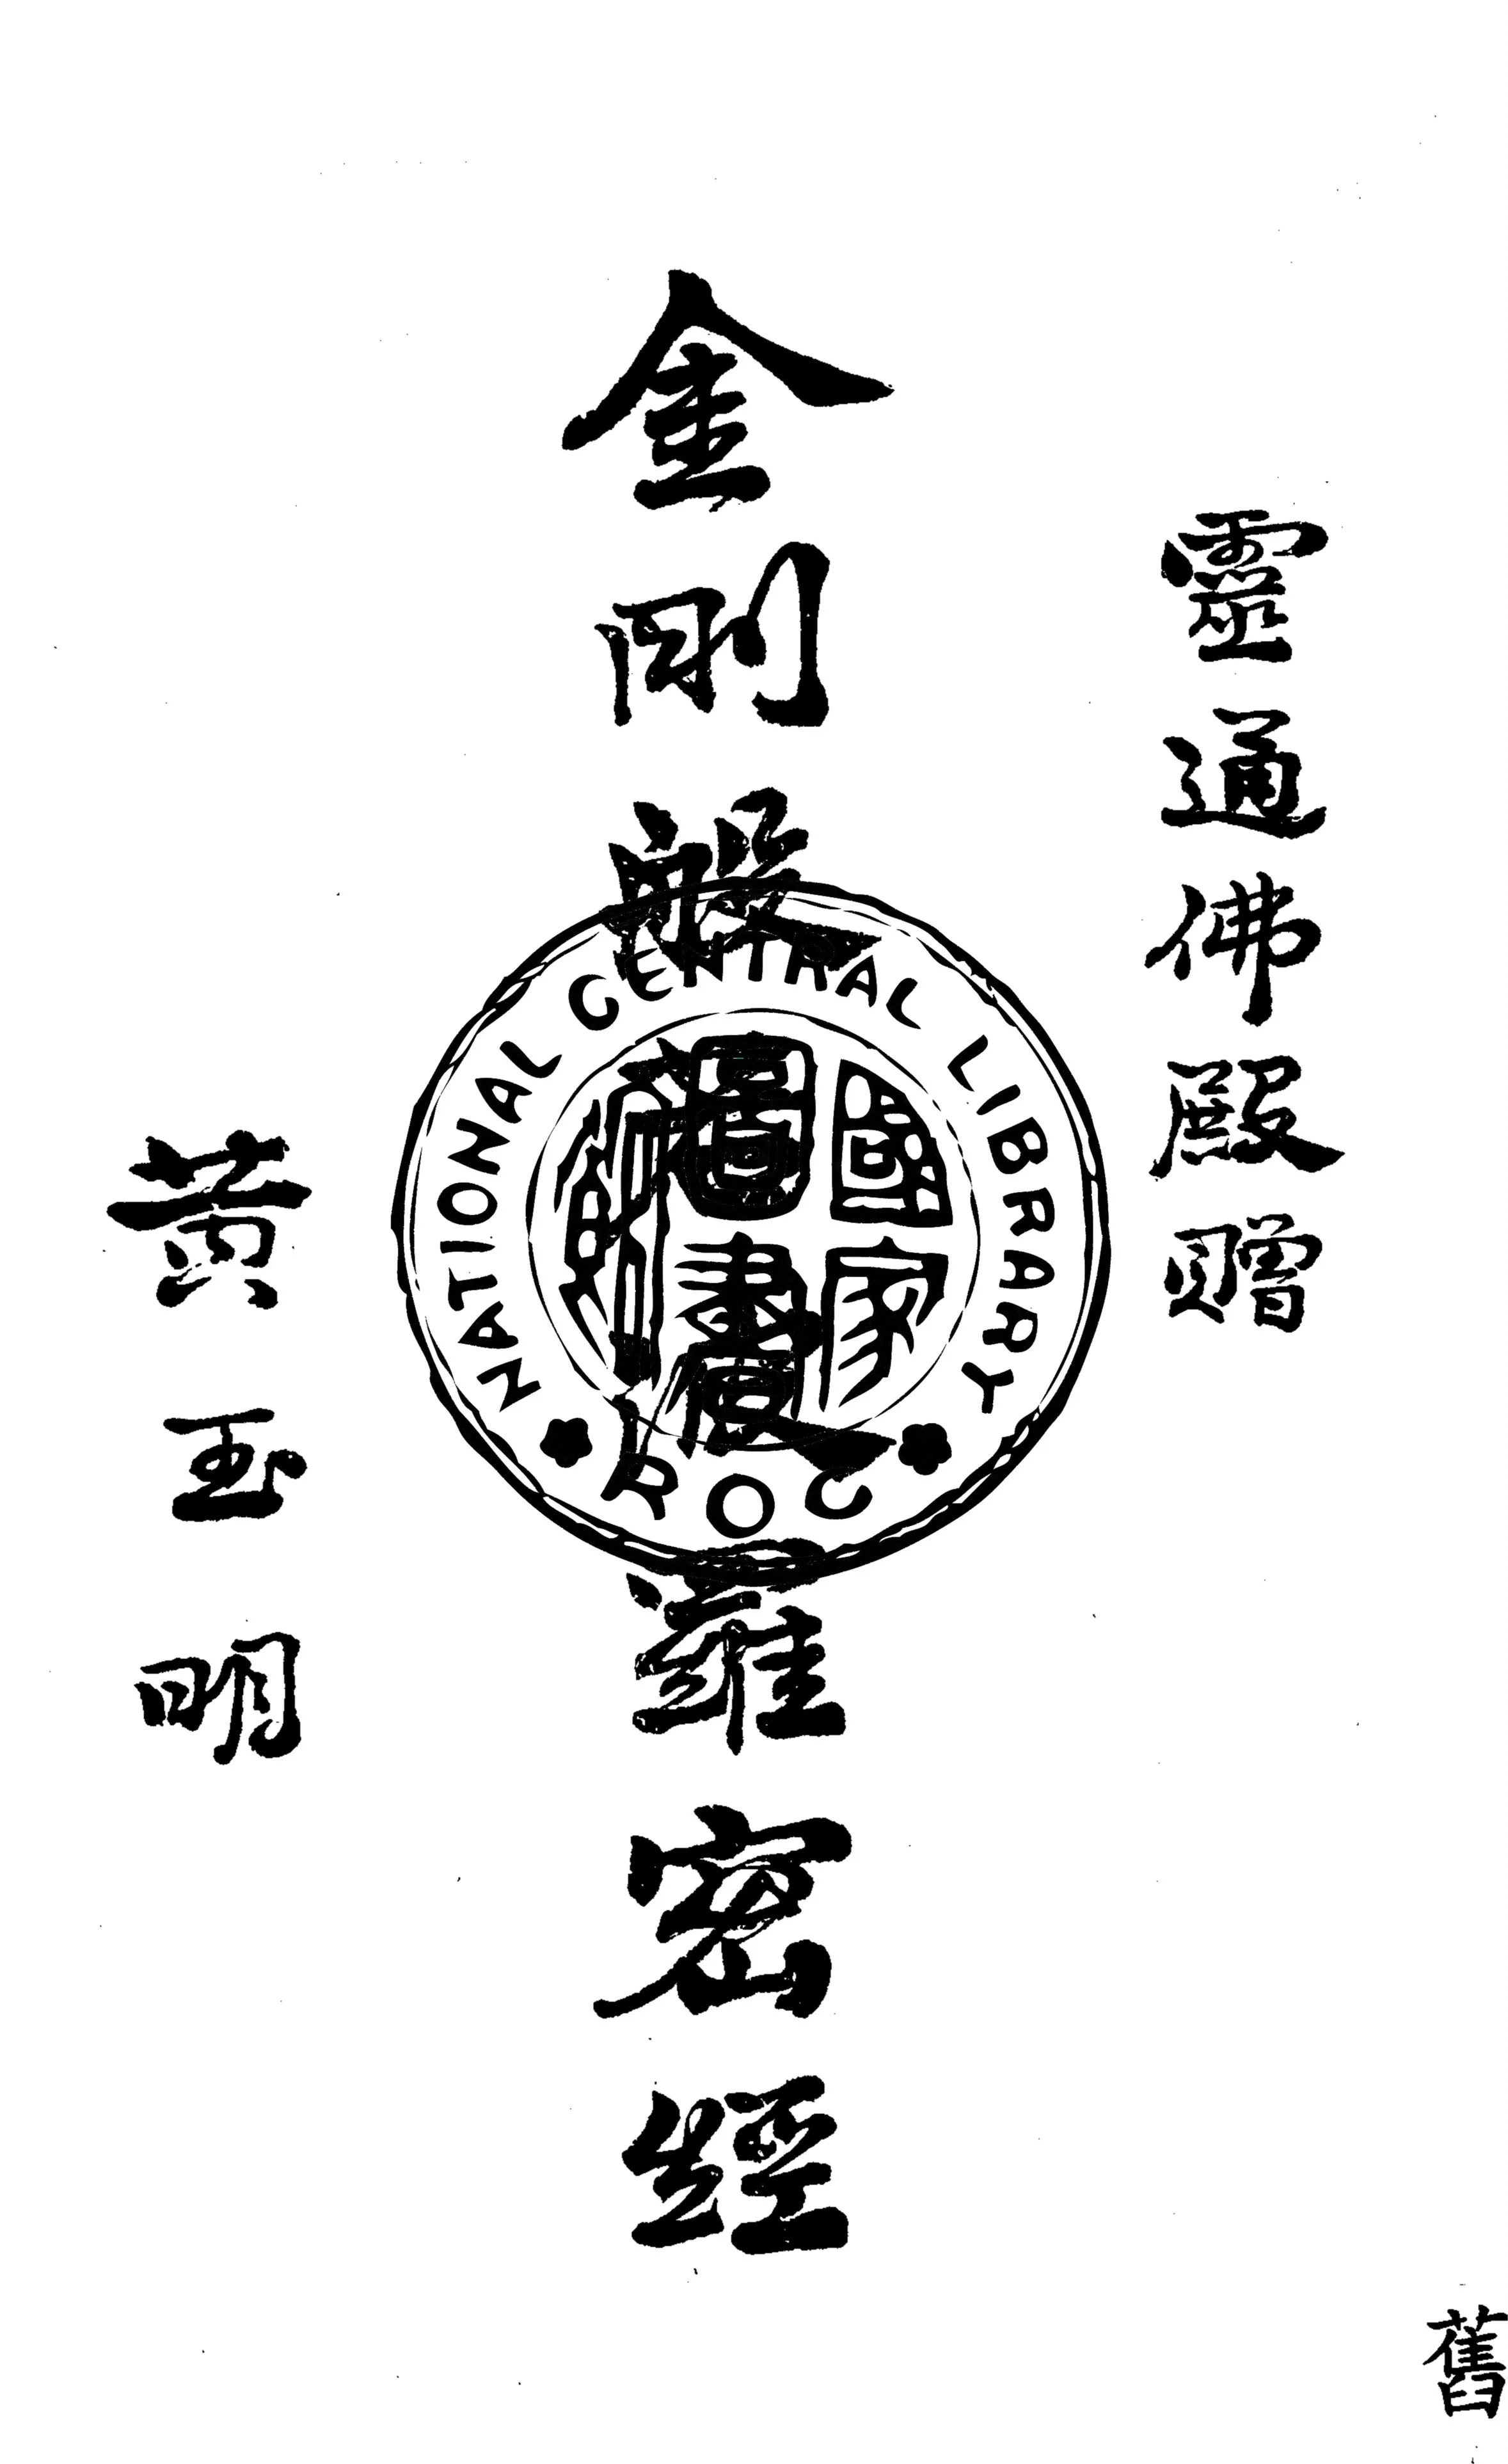 舊
靈通佛殿贈
金剛般若波羅密經
黃玉明
NATIONAL CENTRAL LIBRARY
ROC
國家
圖書
館